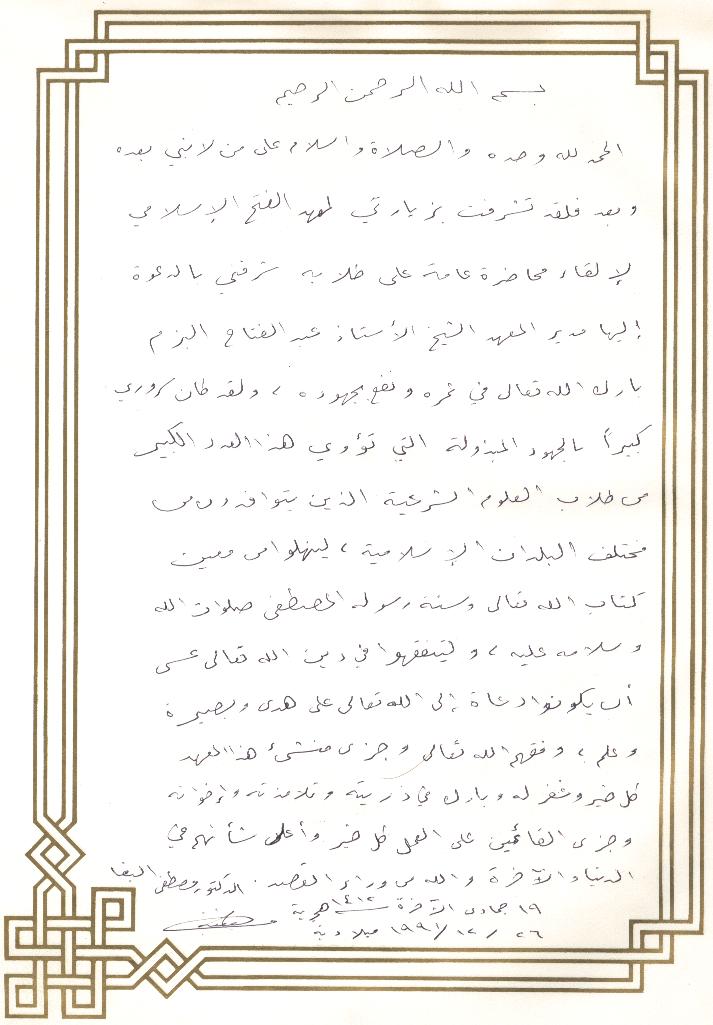 بسم الله الرحمن الرحيم
الحمد لله وحده والصلاة والسلام على من لا نبي بعده
وبعد فلقد تشرفت بزيارتي لمعهد الفتح الإسلامي
لإلقاء محاضرة عامة على طلابه شرفني بالدعوة
إليها مدير المعهد الشيخ الأستاذ عبد الفتاح البزم
بارك الله تعالى في عمره ونفع بجهوده، ولقد كان سروري
كبيراً بالجهود المبذولة التي تؤوي هذا العدد الكبير
من طلاب العلوم الشرعية الذين يتوافدون من
مختلف البلدان الإسلامية، لينهلوا من معين
كتاب الله تعالى وسنة رسوله المصطفى صلوات الله
وسلامه عليه، وليتفقهوا في دين الله تعالى عسى
أن يكونوا دعاة إلى الله تعالى على هدى وبصيرة
وعلم، وفقهم الله تعالى وجزى منشئ هذا المعهد
كل خير وغفر له وبارك في ذريته وتلامذته وإخوانه
وجزى القائمين على العمل كل خير وأعلى شأنهم في
الدنيا والآخرة والله من وراء القصد. الدكتور مصطفى البغا
١٩ جمادى الآخرة ١٤١٢ هجرية
٢٦ / ١٢ / ١٩٩١ ميلادية